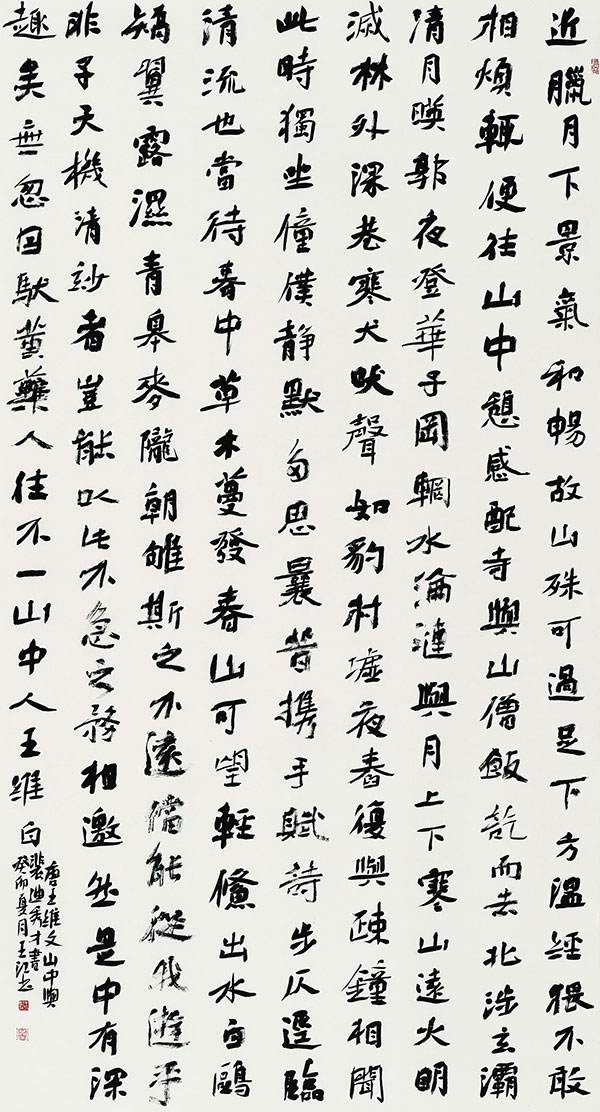 近臘月下景氣和暢故山殊可過足下方溫經猥不敢
相煩輒便往山中憩感配寺與山僧飯訖而去北涉玄灞
清月暎郭夜登華子岡輞水淪漣與月上下寒山遠火明
滅林外深巷寒犬吠聲如豹村墟夜舂復與疎鐘相聞
此時獨坐僮僕静默多思曩昔携手賦詩步仄逕臨
清流也當待春中草木蔓發春山可望輕鯈出水白鷗
矯翼露濕青皋麥隴朝雊斯之不遠倘能從我遊乎
非子天機清妙者豈能以此不急之務相邀然是中有深
趣矣無忽因馱黃蘗人往不一山中人王維白
唐王維文山中與
裴迪秀才書
癸卯夏月王江書